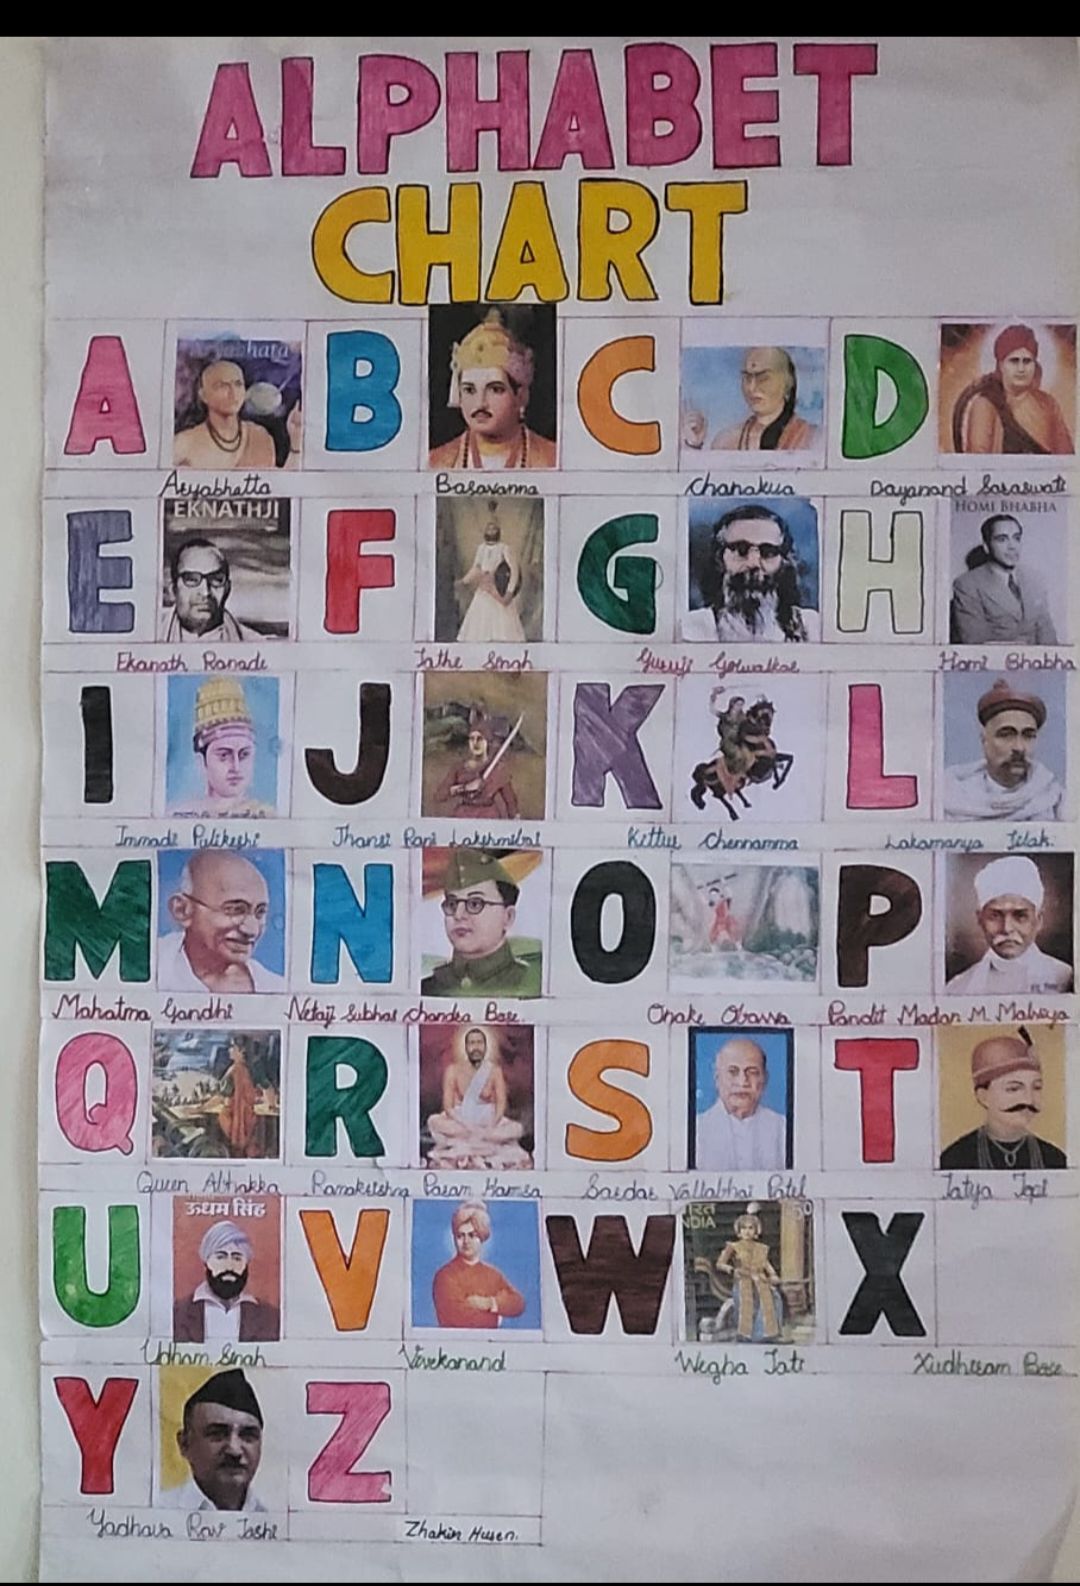 ALPHABET
CHART
A B C D
Aryabhatta Basavanna Chanakya Dayanand Saraswati
EKNATHJI HOMI BHABHA
E F G H
Ekanath Ranade Fathe Singh Guruji Golwalkar Homi Bhabha
I J K L
Immadi Pulikeshi Jhansi Rani Lakshmibai Kittur Chennamma Lokamanya Tilak.
M N O P
Mahatma Gandhi Netaji Subhas Chandra Bose. Onake Obavva Pandit Madan M. Malviya
Q R S T
Queen Abhakka Ramakrishna Param Hamsa Sardar Vallabhai Patel Tatya Topi
ऊधम सिंह
U V W X
Udham Singh Vivekanand Wegha Jati Xudhiram Bose
Y Z
Yadhava Rav Joshi Zhakir Husen.